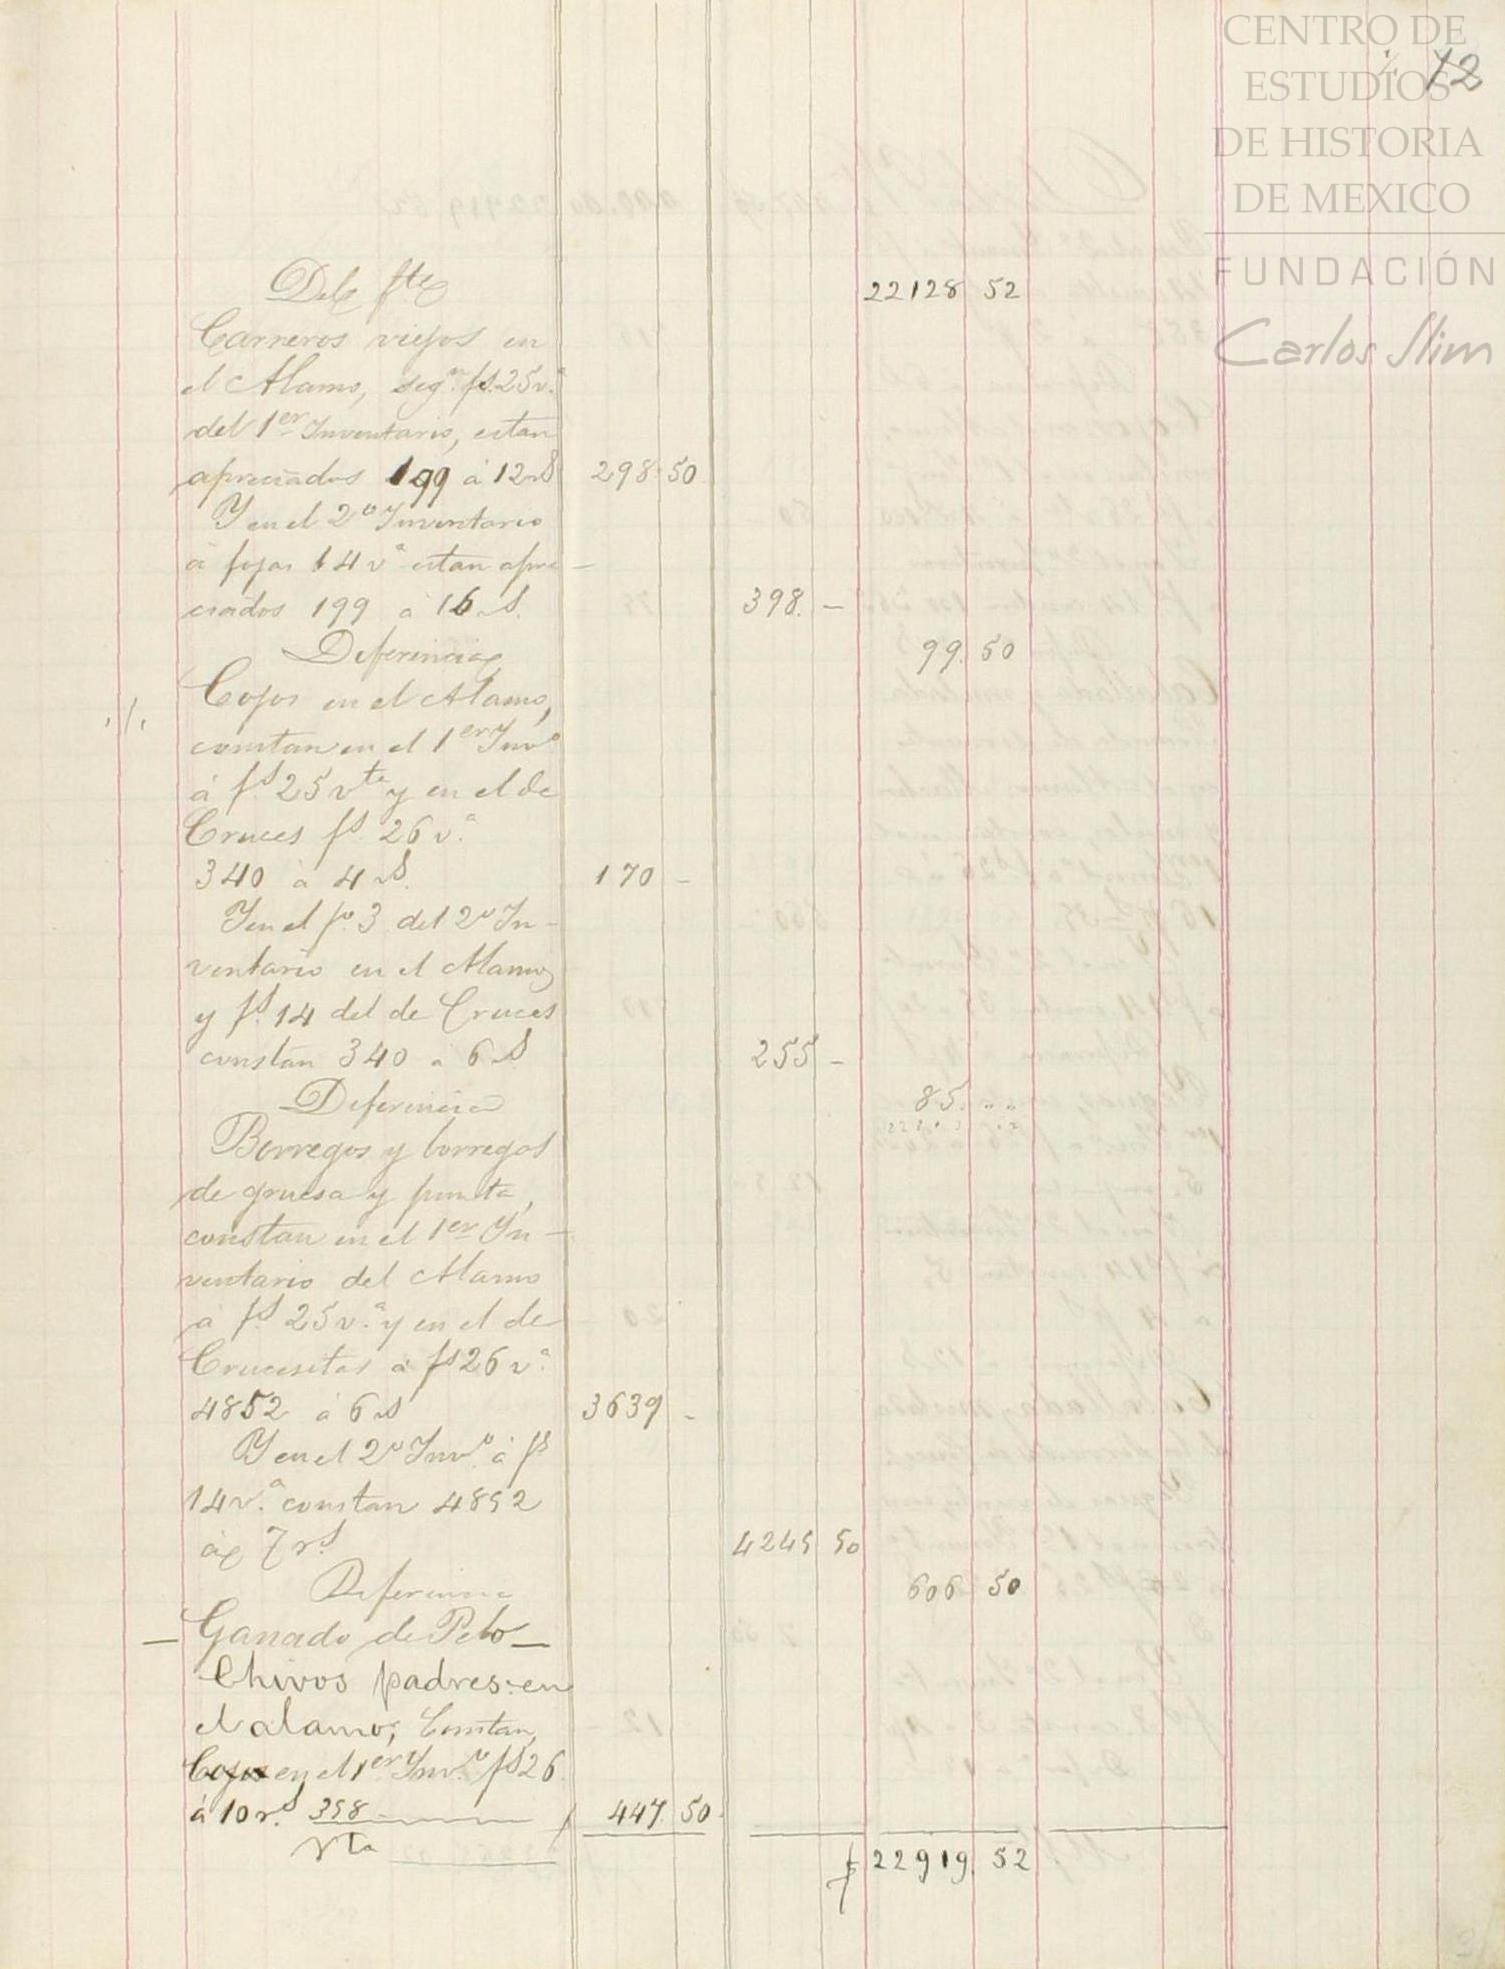 CENTRO DE
ESTUDIOS
DE HISTORIA
DE MEXICO
FUNDACIÓN
Carlos Slim
12
Del fte 22128 52
Carneros viejos en
el Alamo, segn. fs. 25 v.a
del 1er Inventario, estan
apreciados 199 á 12 rs 298 50
Y en el 2o Inventario
á fojas 14 va estan apre-
ciados 199 á 16 rs. 398. —
Diferencia 99. 50
./. Cojos en el Alamo,
constan en el 1er Invo
á fs 25 vta y en el de
Cruces fs. 26 v.a
340 á 4 rs. 170 —
Y en el fo. 3 del 2o In-
ventario en el Alamo
y fs. 14 del de Cruces
constan 340 á 6 rs 255 —
Diferencia 85. "
Borregos y borregas
de gruesa y punta,
constan en el 1er In-
ventario del Alamo
á fs. 25 v.a y en el de
Crucesitas á fs 26 v.a
4852 á 6 rs 3639 —
Y en el 2o Invo. á fs
14 v.a constan 4852
á 7 rs. 4245 50
Diferencia 606 50
— Ganado de Pelo —
Chivos padres en
el alamo, Constan,
Cojos en el 1er Inv.o fs 26.
á 10 rs. 358 447. 50
Vta $ 22919. 52